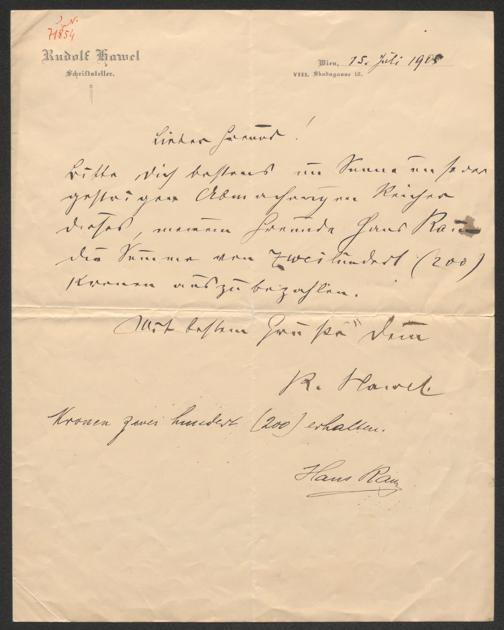 J. N.
71854
Rudolf Hawel
Schriftsteller.
Wien, 15. Juli 190
VIII. Skodagasse 15.
Lieber Freund!
Bitte Dich bestens im Sinne unserer
gestrigen Abmachungen
dieses, meinem Freunde Hans
die Summe von Zweihundert (200)
Kronen auszubezahlen.
Mit bestem Gruße Dein
R. Hawel.
Kronen zwei hundert (200) erhalten.
Hans